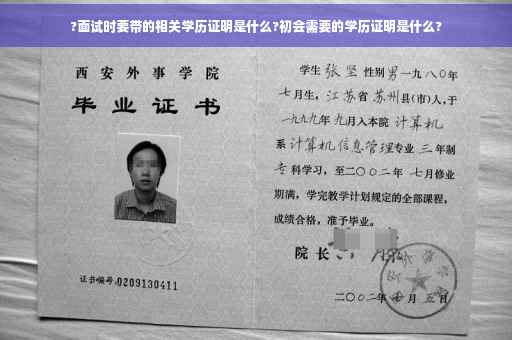 ?面试时要带的相关学历证明是什么?初会需要的学历证明是什么?
西安外事学院
毕业证书
证书编号:0209130411
学生 张坚 性别 男 一九八〇年
七月生，江苏省 苏州 县(市)人，于
一九九九年 九月入本院 计算机
系 计算机信息管理 专业 三 年制
专科学习，至二〇〇二年 七月修业
期满，学完教学计划规定的全部课程，
成绩合格，准予毕业。
院长
二〇〇二年 七月 五日